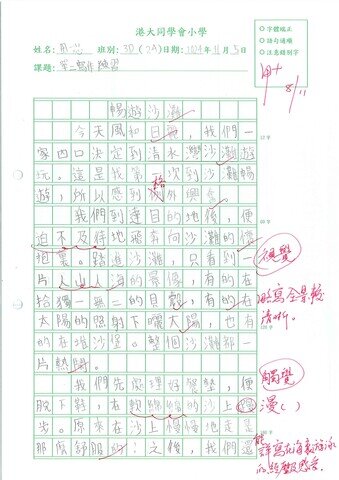 港大同學會小學
姓名： 班別：3D(2A)日期：2024年11月5日
課題：單二寫作練習
☆字體端正
☆語句通順
☆注意錯別字
甲+
8/11
暢遊沙灘
今天風和日麗，我們一
家四口決定到清水灣沙灘遊
玩。這是我第一次到沙灘暢
遊，所以感到格外興奮。
我們到達目的地後，便
迫不及待地飛奔向沙灘的懷
抱裏。踏進沙灘，只看到一
片人山人海的景像，有的在
拾獨一無二的貝殼，有的在
太陽的照射下曬太陽，也有
的在堆沙堡。整個沙灘都一
片熱鬧。
視覺
能寫全景較
清晰。
我們先處理好餐墊，便
脫下鞋，在軟綿綿的沙上慢
步。原來在沙上慢慢地走是
那麼舒服的；之後，我們還
觸覺
漫( )
能詳寫在海裏游泳
的經歷及感受。